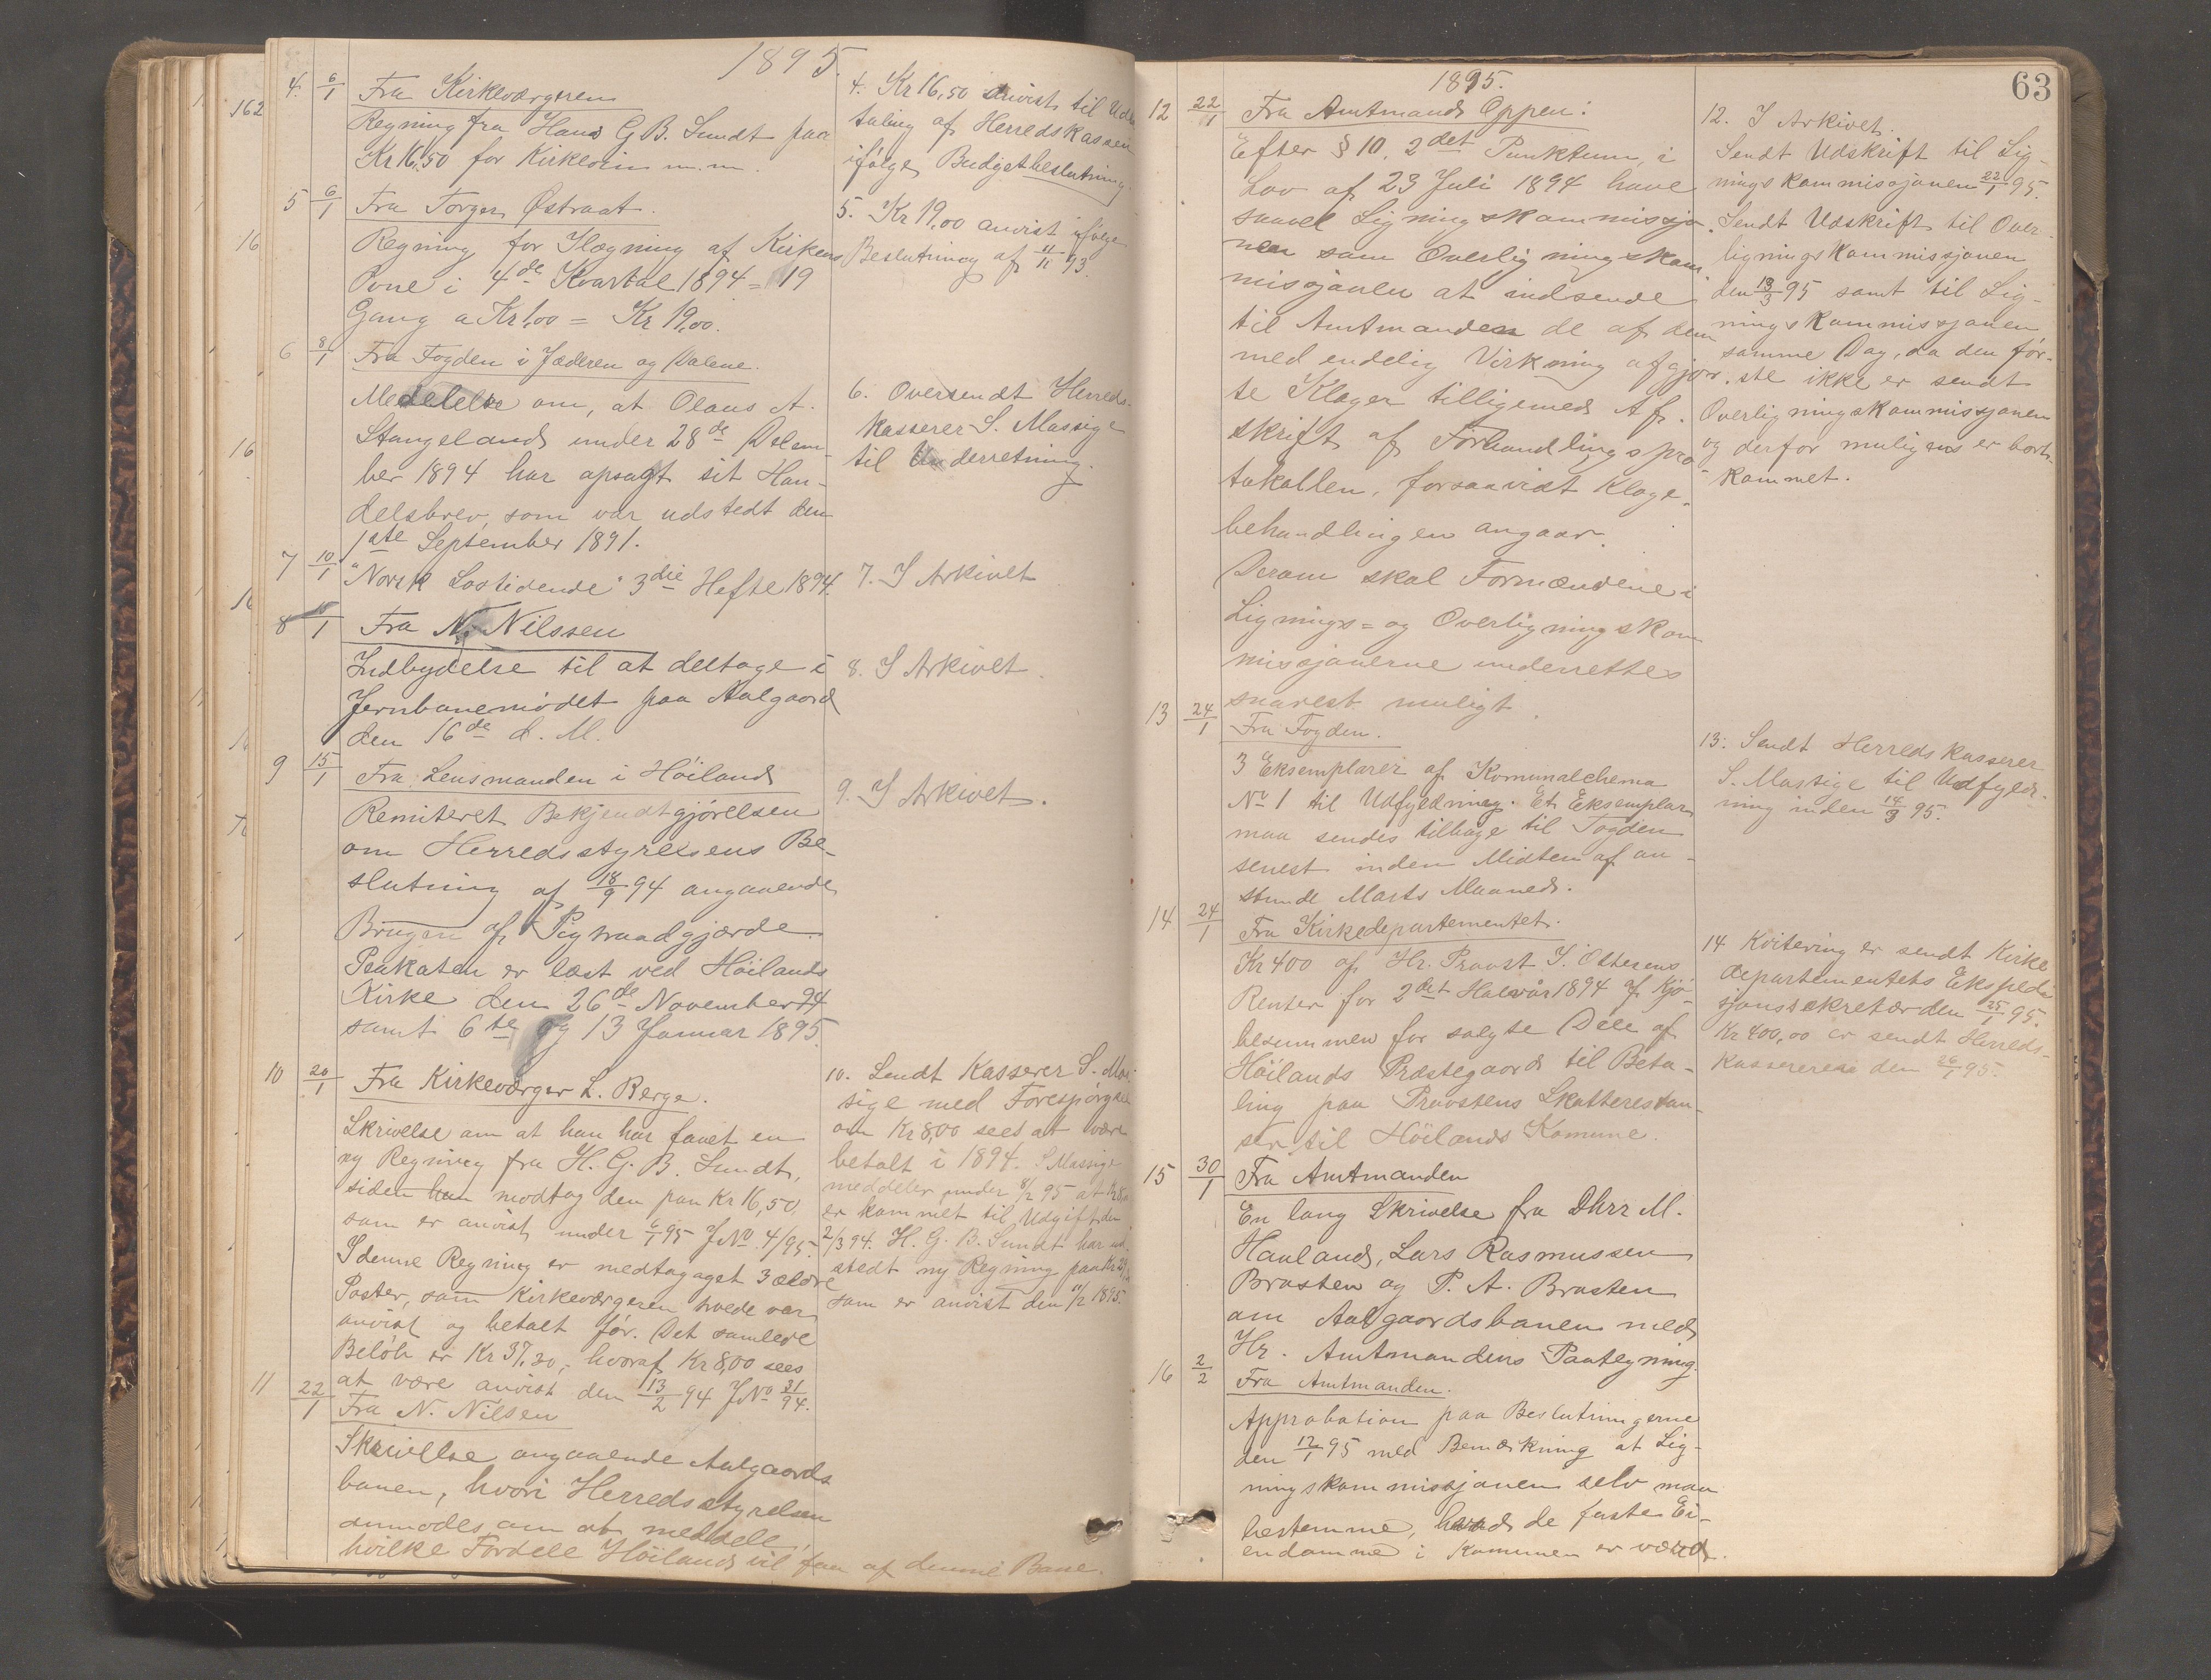 1895.
4. 6/1 Fra Kirkeværgeren
Regning fra Hans G. B. Sundt paa
Kr 16,50 for Kirkevin m. m.
5 6/1 Fra Torger Østraat.
Regning for Ilægning af Kirkens
Ovne i 4de Kvartal 1894 = 19
Gang a Kr 1,00 = Kr 19,00.
6 8/1 Fra Fogden i Jæderen og Dalene.
Meddelelse om, at Olaus A.
Stangeland under 28de Desem-
ber 1894 har opsagt sit Han-
delsbrev, som var udstedt den
1ste September 1891.
7 10/1 "Norsk Lovtidende" 3die Hefte 1894.
8 /1 Fra N. Nilssen
Indbydelse til at deltage i
Jernbanemødet paa Aalgaard
den 16de d. M.
9 15/1 Fra Lensmanden i Høiland
Remiteret Bekjendtgjørelsen
om Herredsstyrelsens Be-
slutning af 18/9 94 angaaende
Brugen af Pigtraadgjærde.
Plakaten er læst ved Høilands
Kirke den 26de November 94
samt 6te og 13 Januar 1895.
10 20/1 Fra Kirkeværger L. Berge.
Skrivelse om at han har faaet en
ny Regning fra H. G. B. Sundt,
siden han modtog den paa Kr 16,50,
som er anvist under 6/1 95 J№ 4/95.
I denne Regning er medtagaget 3 ældre
Poster, som Kirkeværgeren trode var
anvist og betalt før. Det samlede
Beløb er Kr 37,30, hvoraf Kr 8,00 sees
at være anvist den 13/2 94 J№ 31/94.
11 22/1 Fra N. Nilsen
Skrivelse angaaende Aalgaards
banen, hvori Herredsstyrelsen
anmodes om at meddele,
hvilke Fordele Høiland vil faa af denne Bane.
4. Kr 16,50 anvist til Udbe
taling af Herredskassen
ifølge Budgetbeslutning.
5. Kr 19,00 anvist ifølge
Beslutning af 11/11 93.
6. Oversendt Herreds-
kasserer S. Massige
til Underretning.
7. I Arkivet
8. I Arkivet.
9. I Arkivet.
10. Sendt Kasserer S. Mas-
sige med Forespørgsel
om Kr 8,00 sees at være
betalt i 1894. S Massige
meddeler under 8/2 95 at Kr 8,00
er kommet til Udgift den
2/3 94. H. G. B. Sundt har ud-
stedt ny Regning paa Kr
som er anvist den 11/2 1895.
162
16
16
63
1895.
12 22/1 Fra Amtmand Oppen:
Efter § 10. 2det Punktum, i
Lov af 23 Juli 1894 have
saavel Ligningskommissjo-
nen som Overligningskom-
missjonen at indsende
til Amtmanden de af dem
med endelig Virkning afgjor-
te Klager tilligemed Af-
skrift af Forhandlingspro-
tokollen, forsaavidt Klage-
behandlingen angaar.
Derom skal Formændene i
Lignings= og Overligningskom
missjonerne underrettes
snarest muligt.
13 24/1 Fra Fogden.
3 Eksemplarer af Komunalchema
№ 1 til Udfyldning. Et Eksemplar
maa sendes tilbage til Fogden
senest inden Midten af an-
stunde Marts Maaned.
14 24/1 Fra Kirkedepartementet.
Kr 400 af Hr. Provst I. Oltesens
Renter for 2det Halvår 1894 af Kjø-
besummen for solgte Dele af
Høilands Præstegaard til Beta-
ling paa Provstens Skatterestan-
ser til Høilands Komune.
15 30/1 Fra Amtmanden
En lang Skrivelse fra Dhrr M.
Hauland, Lars Rasmussen
Brasten og P. A. Brasten
om Aalgaardsbanen med
Hr. Amtmandens Paategning.
16 2/2 Fra Amtmanden.
Approbation paa Beslutningerne
den 12/1 95 med Bemærkning at Lig-
ningskommissjonen selv maa
bestemme, hvad de faste Ei-
endomme i Kommunen er værd.
12. I Arkivet.
Sendt Udskrift til Lig-
ningskommissjonen 22/1 95.
Sendt Udskrift til Over-
ligningskommissjonen
den 13/3 95 samt til Lig-
ningskommissjonen
samme Dag, da den før-
ste ikke er sendt
Overligningskommissjonen
og derfor muligens er bort-
kommet.
13. Sendt Herredskasserer
S. Massige til Udfyld-
ning inden 14/3 95.
14 Kvitering er sendt Kirke
departementets Ekspedi
sjonssekretær den 25/1 95.
Kr 400,00 er sendt Herreds-
kassereren den 26/1 95.